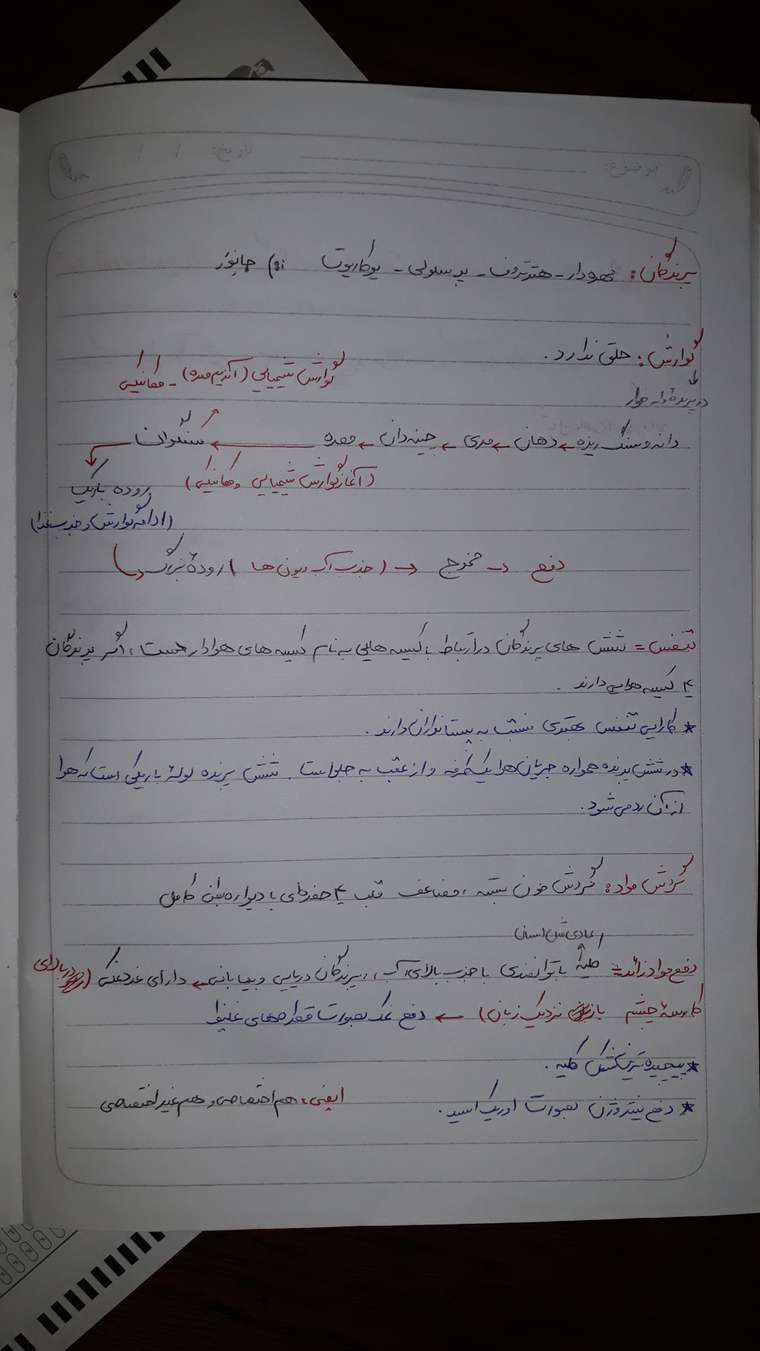 موضوع: تاریخ: / /
پرندگان: مهره‌دار - هتروتروف - پرسلولی - یوکاریوت جانور
گوارش: حلق ندارد.
گوارش شیمیایی (آنزیم معده) - مکانیکی
در پرندهٔ دانه خوار
دانه و سنگ ریزه ← دهان ← مری ← چینه دان ← معده ← سنگدان
(آغاز گوارش شیمیایی و مکانیکی)
روده باریک
(ادامه گوارش و جذب غذا)
رودهٔ بزرگ (جذب آب و یون ها) → مخرج → دفع
تنفس = شش های پرندگان در ارتباط با کیسه هایی به نام کیسه های هوادار هست، اکثر پرندگان
کیسه هوایی دارند.
* کارایی تنفس بهتری نسبت به پستانداران دارند.
* در شش پرنده همواره جریان هوا یک طرفه و از عقب به جلو است. شش پرنده لولهٔ باریکی است که هوا
از آن رد می شود.
گردش مواد: گردش خون بسته، مضاعف قلب ۴ حفره‌ای با دیواره بطن کامل
دفع مواد زائد = کلیه با توانمندی با جذب بالای آب، پرندگان دریایی و بیابانی ← دارای غدد نمکی
کاسهٔ چشم یا نزدیک زبان) ← دفع نمک بصورت قطره‌های غلیظ
* پیچیده ترین شکل کلیه.
* دفع نیتروژن بصورت اوریک اسید.
ایمنی: هم اختصاصی و هم غیر اختصاصی